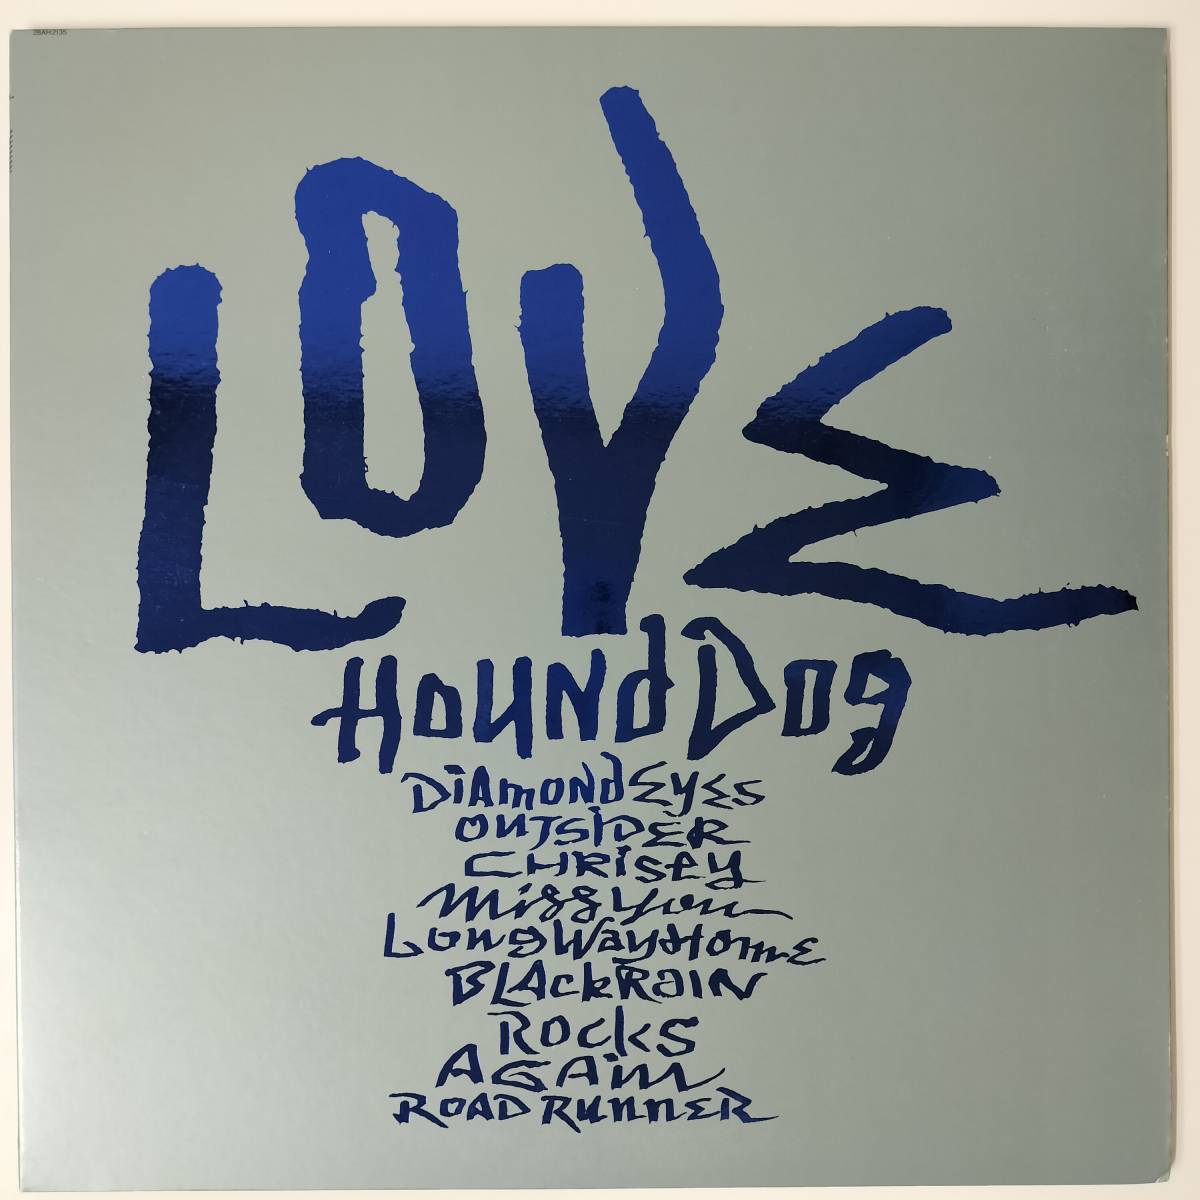 28AH2135
LOVE
HOUND DOG
DIAMOND EYES
OUTSIDER
CHRISEY
Miss You
LONG WAY HOME
BLACK RAIN
ROCKS
AGAIN
ROAD RUNNER